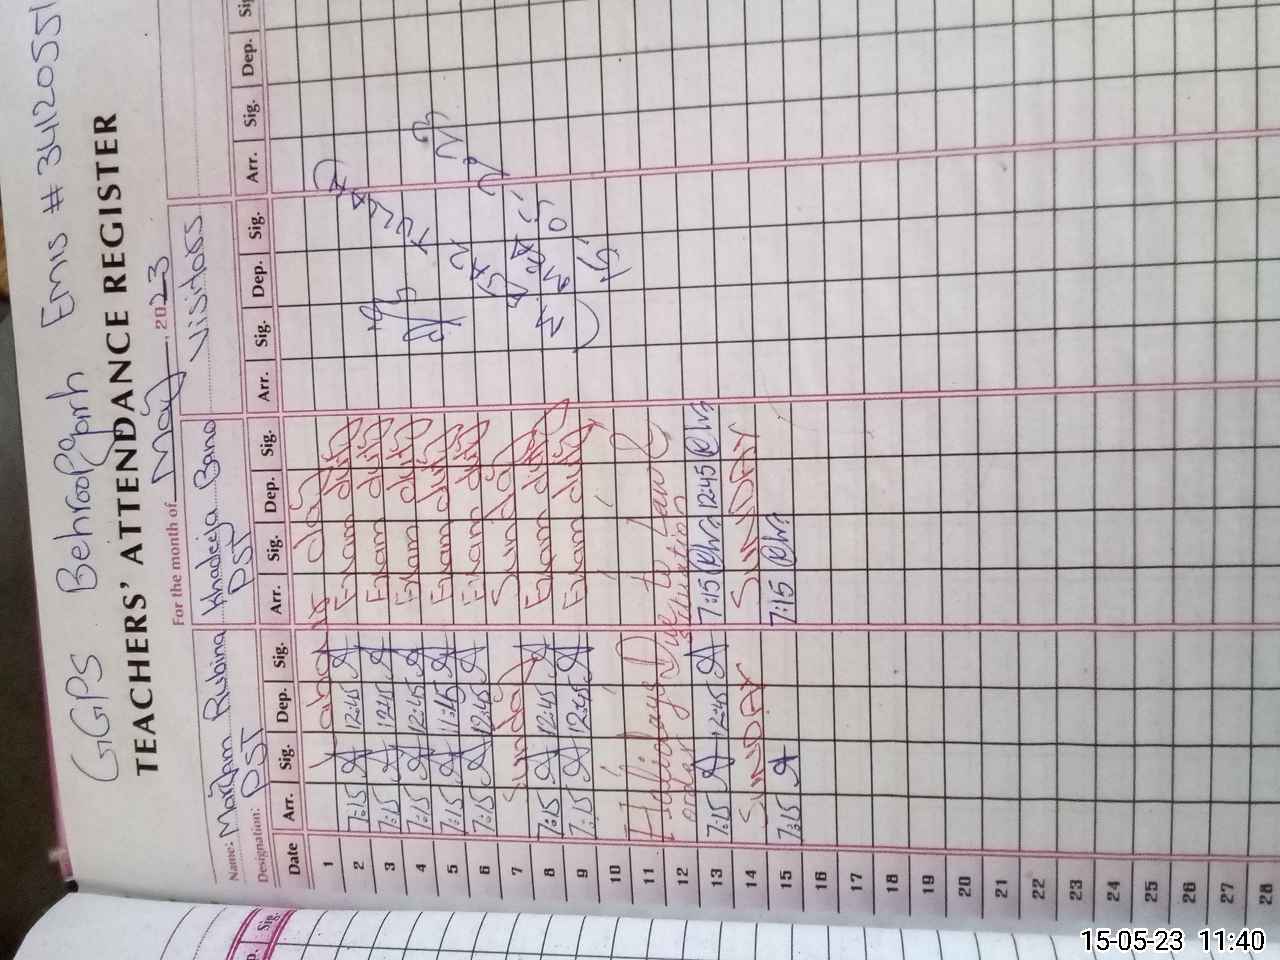 GGPS Behroopgarh Emis # 34120551
TEACHERS' ATTENDANCE REGISTER
For the month of May, 2023
Name: Maryam Rubina Khadeeja Bano Visitors
Designation: PST PST
Date Arr. Sig. Dep. Sig. Arr. Sig. Dep. Sig. Arr. Sig. Dep. Sig. Arr. Sig. Dep. Sig.
1 Labour day
2 7:15 12:45 Exam duty
3 7:15 12:45 Exam duty
4 7:15 12:45 Exam duty
5 7:15 11:45 Exam duty
6 7:15 12:45 Exam duty
7 Sunday Sunday
8 7:15 12:45 Exam duty
9 7:15 12:45 Exam duty
10
11 Holidays Due to Law &
12 order situation
13 7:15 12:45 7:15 12:45
14 SUNDAY SUNDAY
15 7:15 7:15
16
17
18
19
20
21
22
23
24
25
26
27
28
p. Sig.
15-05-23 11:40